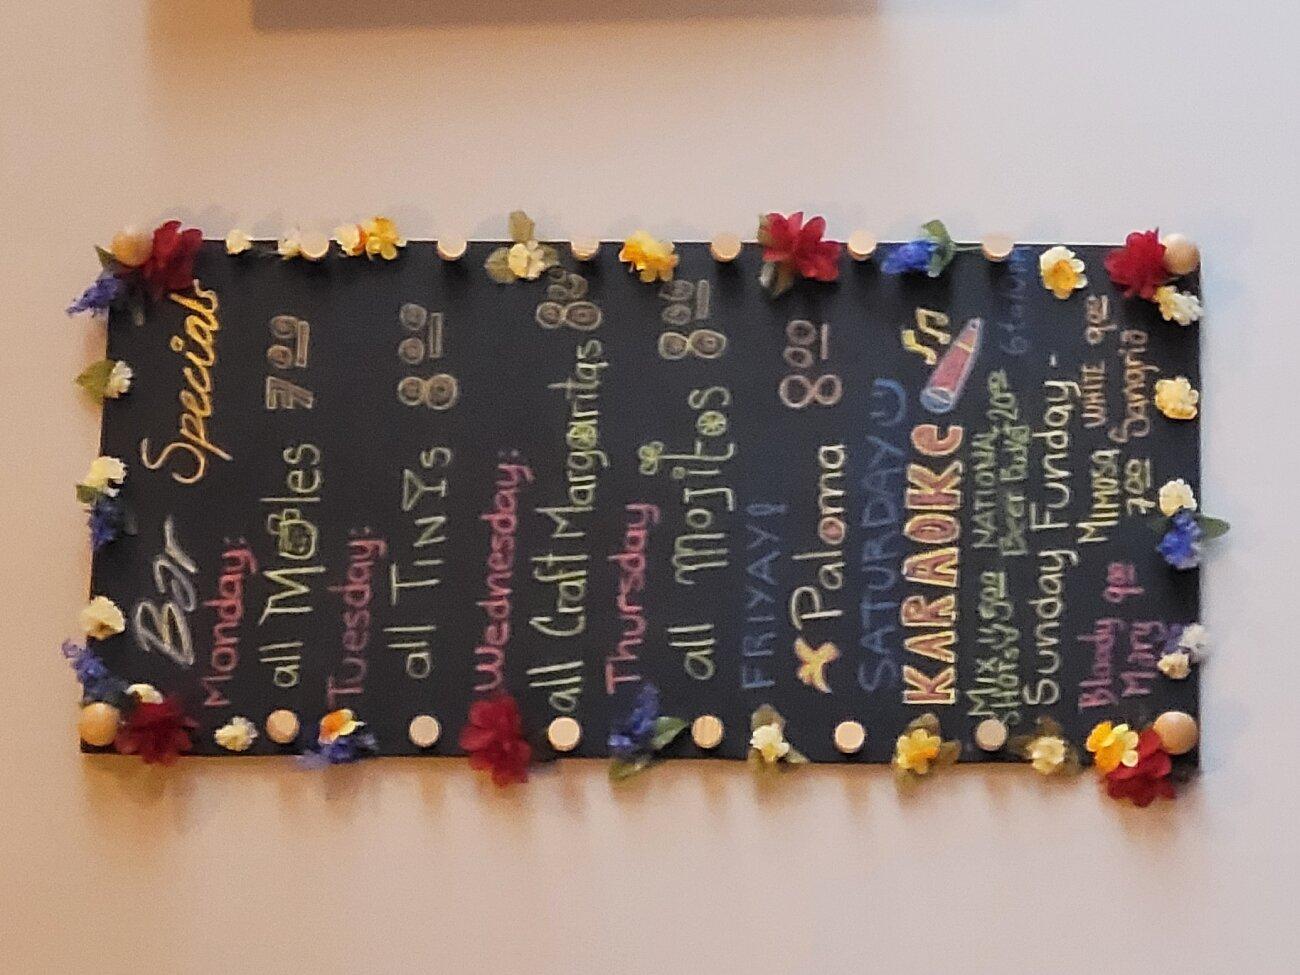 Bar Specials
Monday:
all Mules 7.00
Tuesday:
all TINYs 8.00
Wednesday:
all Craft Margaritas 8.00
Thursday
all mojitos 8.00
FRIYAY!
Paloma 8.00
SATURDAY
KARAOKe
Mix NATIONAL
SHOTS 5.00 Beer Bucket 20.00
Sunday Funday-
Bloody Mary 9.00
MIMOSA 7.00
WHITE Sangria 9.00